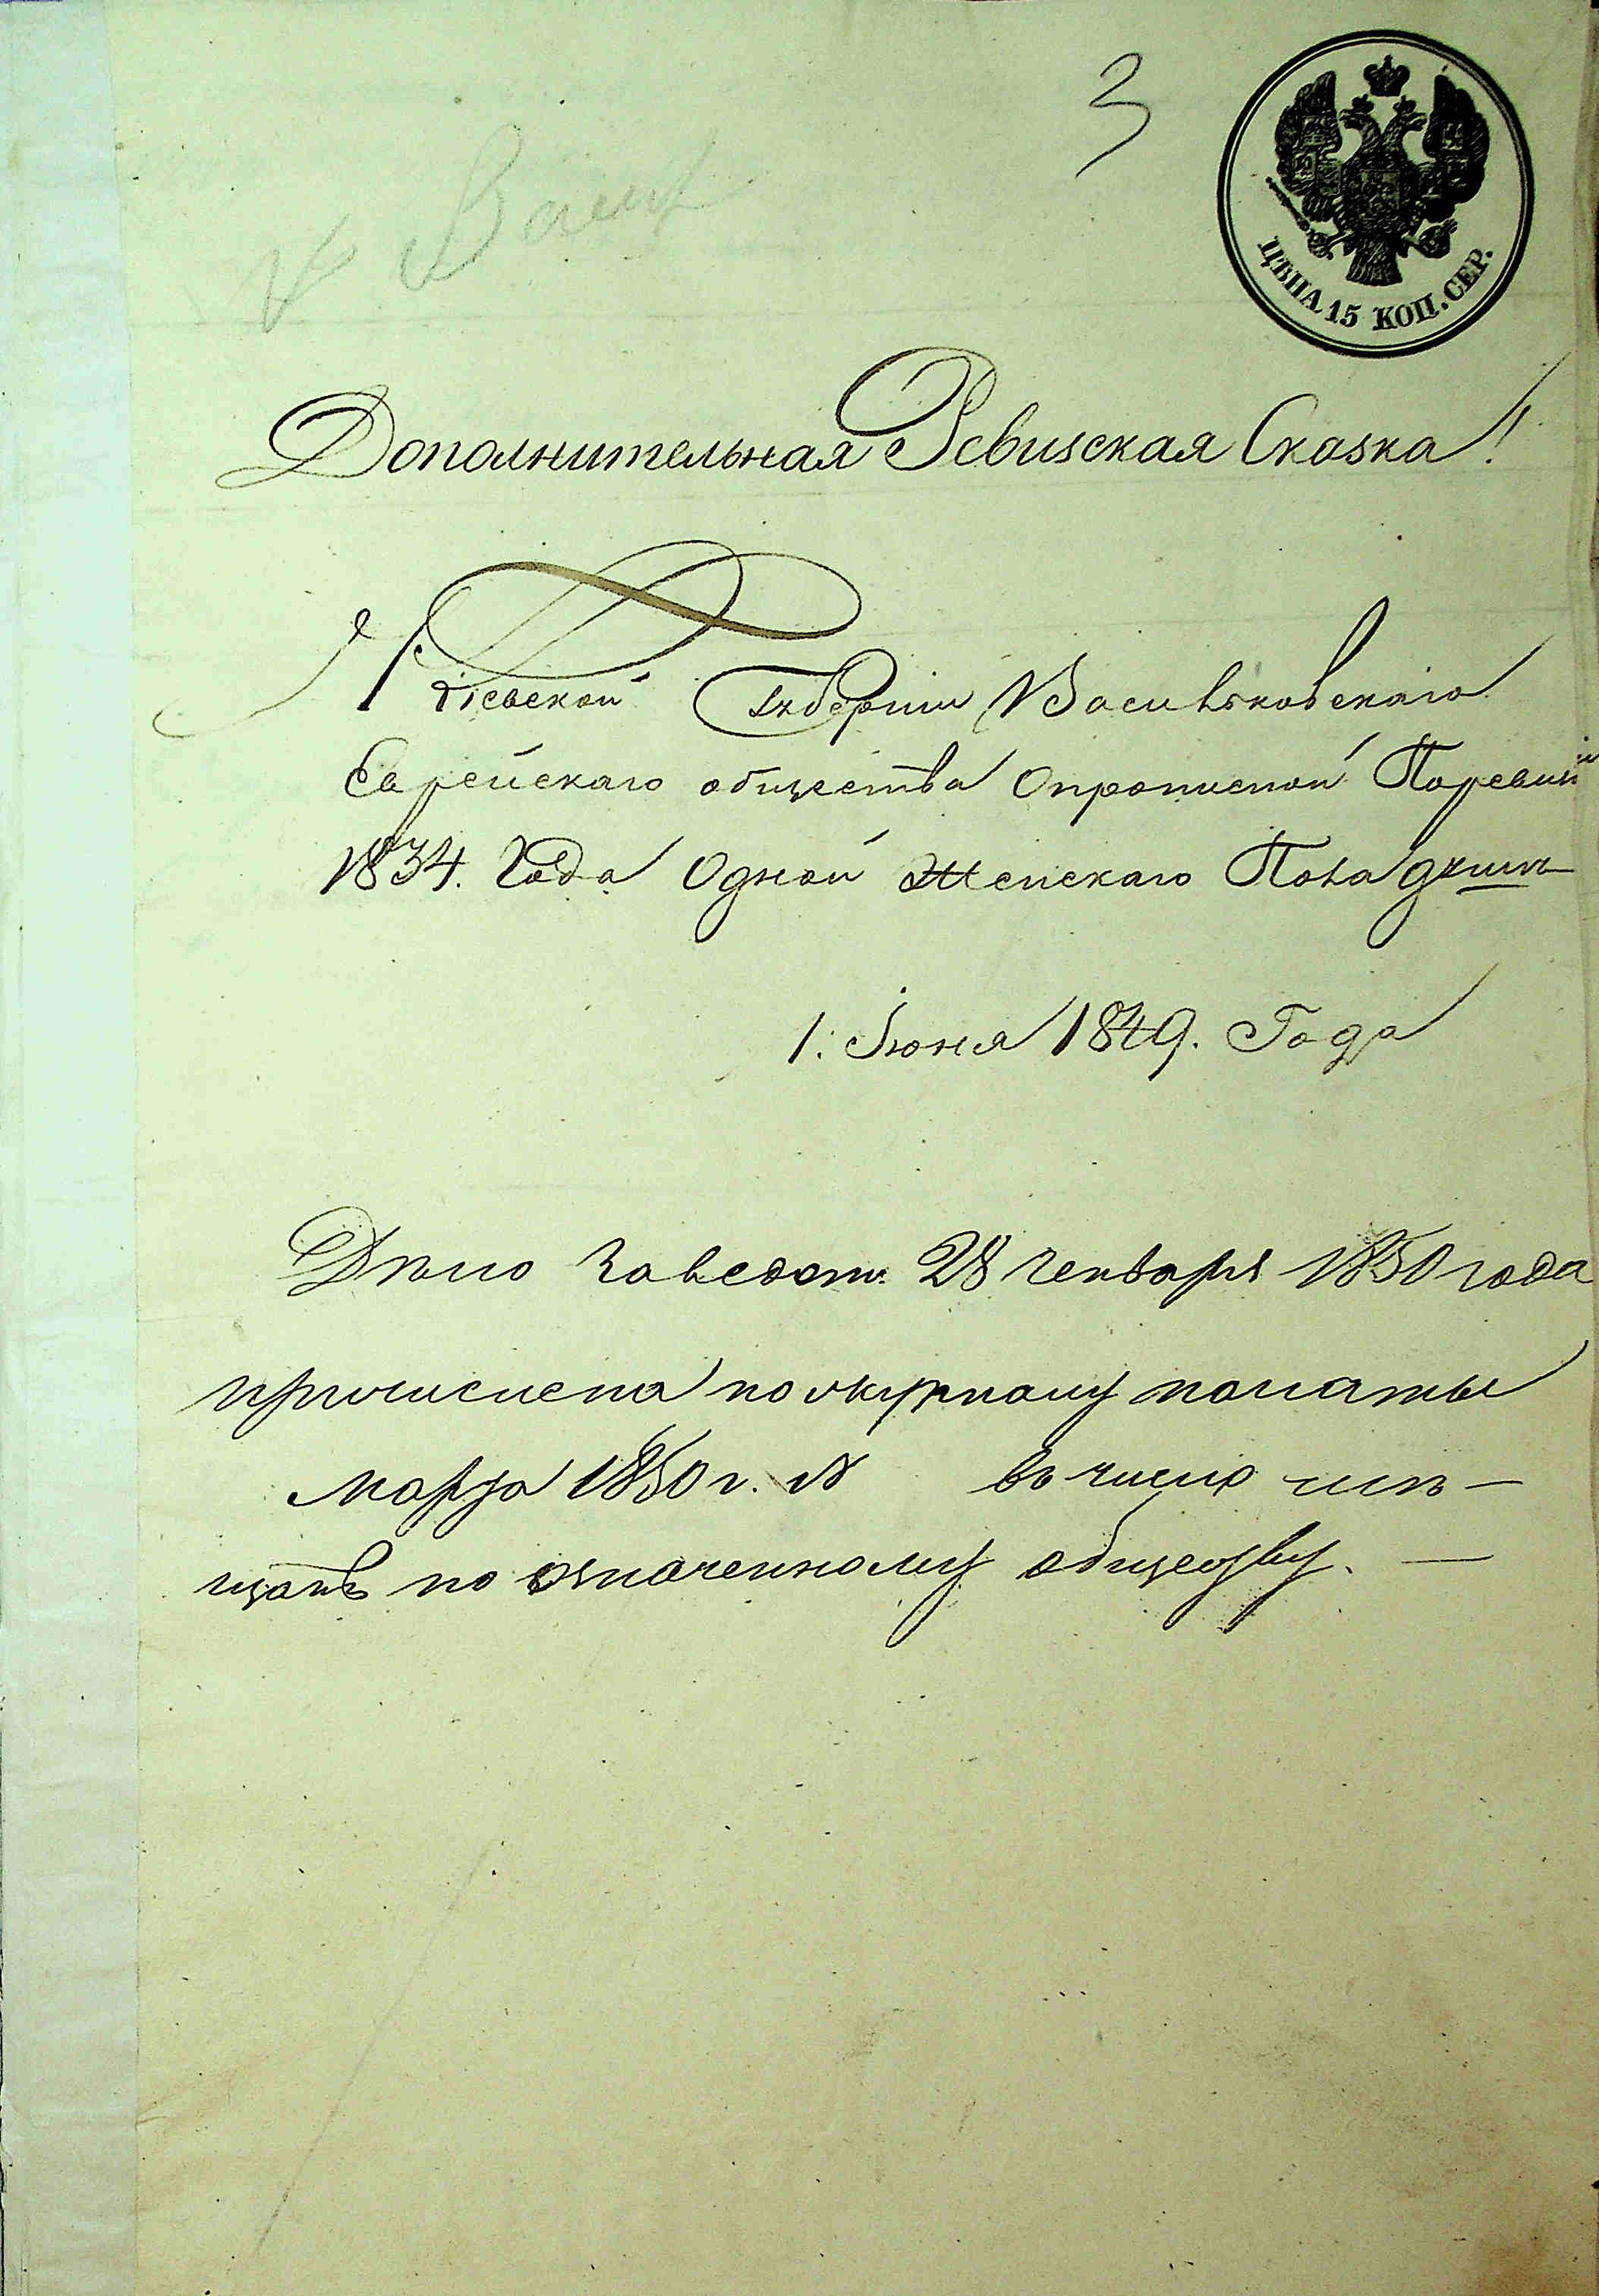 3
ЦѢНА 15 КОП. СЕР.
Дополнительная Ревизская Сказка!
Кіевской Губерніи Васильковскаго
Еврейскаго общества опрописной Поревизіи
1834. Года Одной Женскаго Пола душѣ
1. Іюня 1849. Года
Дѣло заведен. 28 Генваря 1850 года
причислена по палаты
марта 1850 г. № въ число мѣ-
щанъ по означенному обществу. —